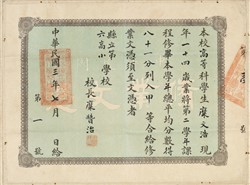 本校高等科學生糜文浩現
年一十四歲業將第二學年課
程修畢本學年總平均分數得
八十一分列入甲等合給修
業文憑須至文憑者
縣立第
六高小學校
校長糜晉治
中華民國三年七月 日給
第一號